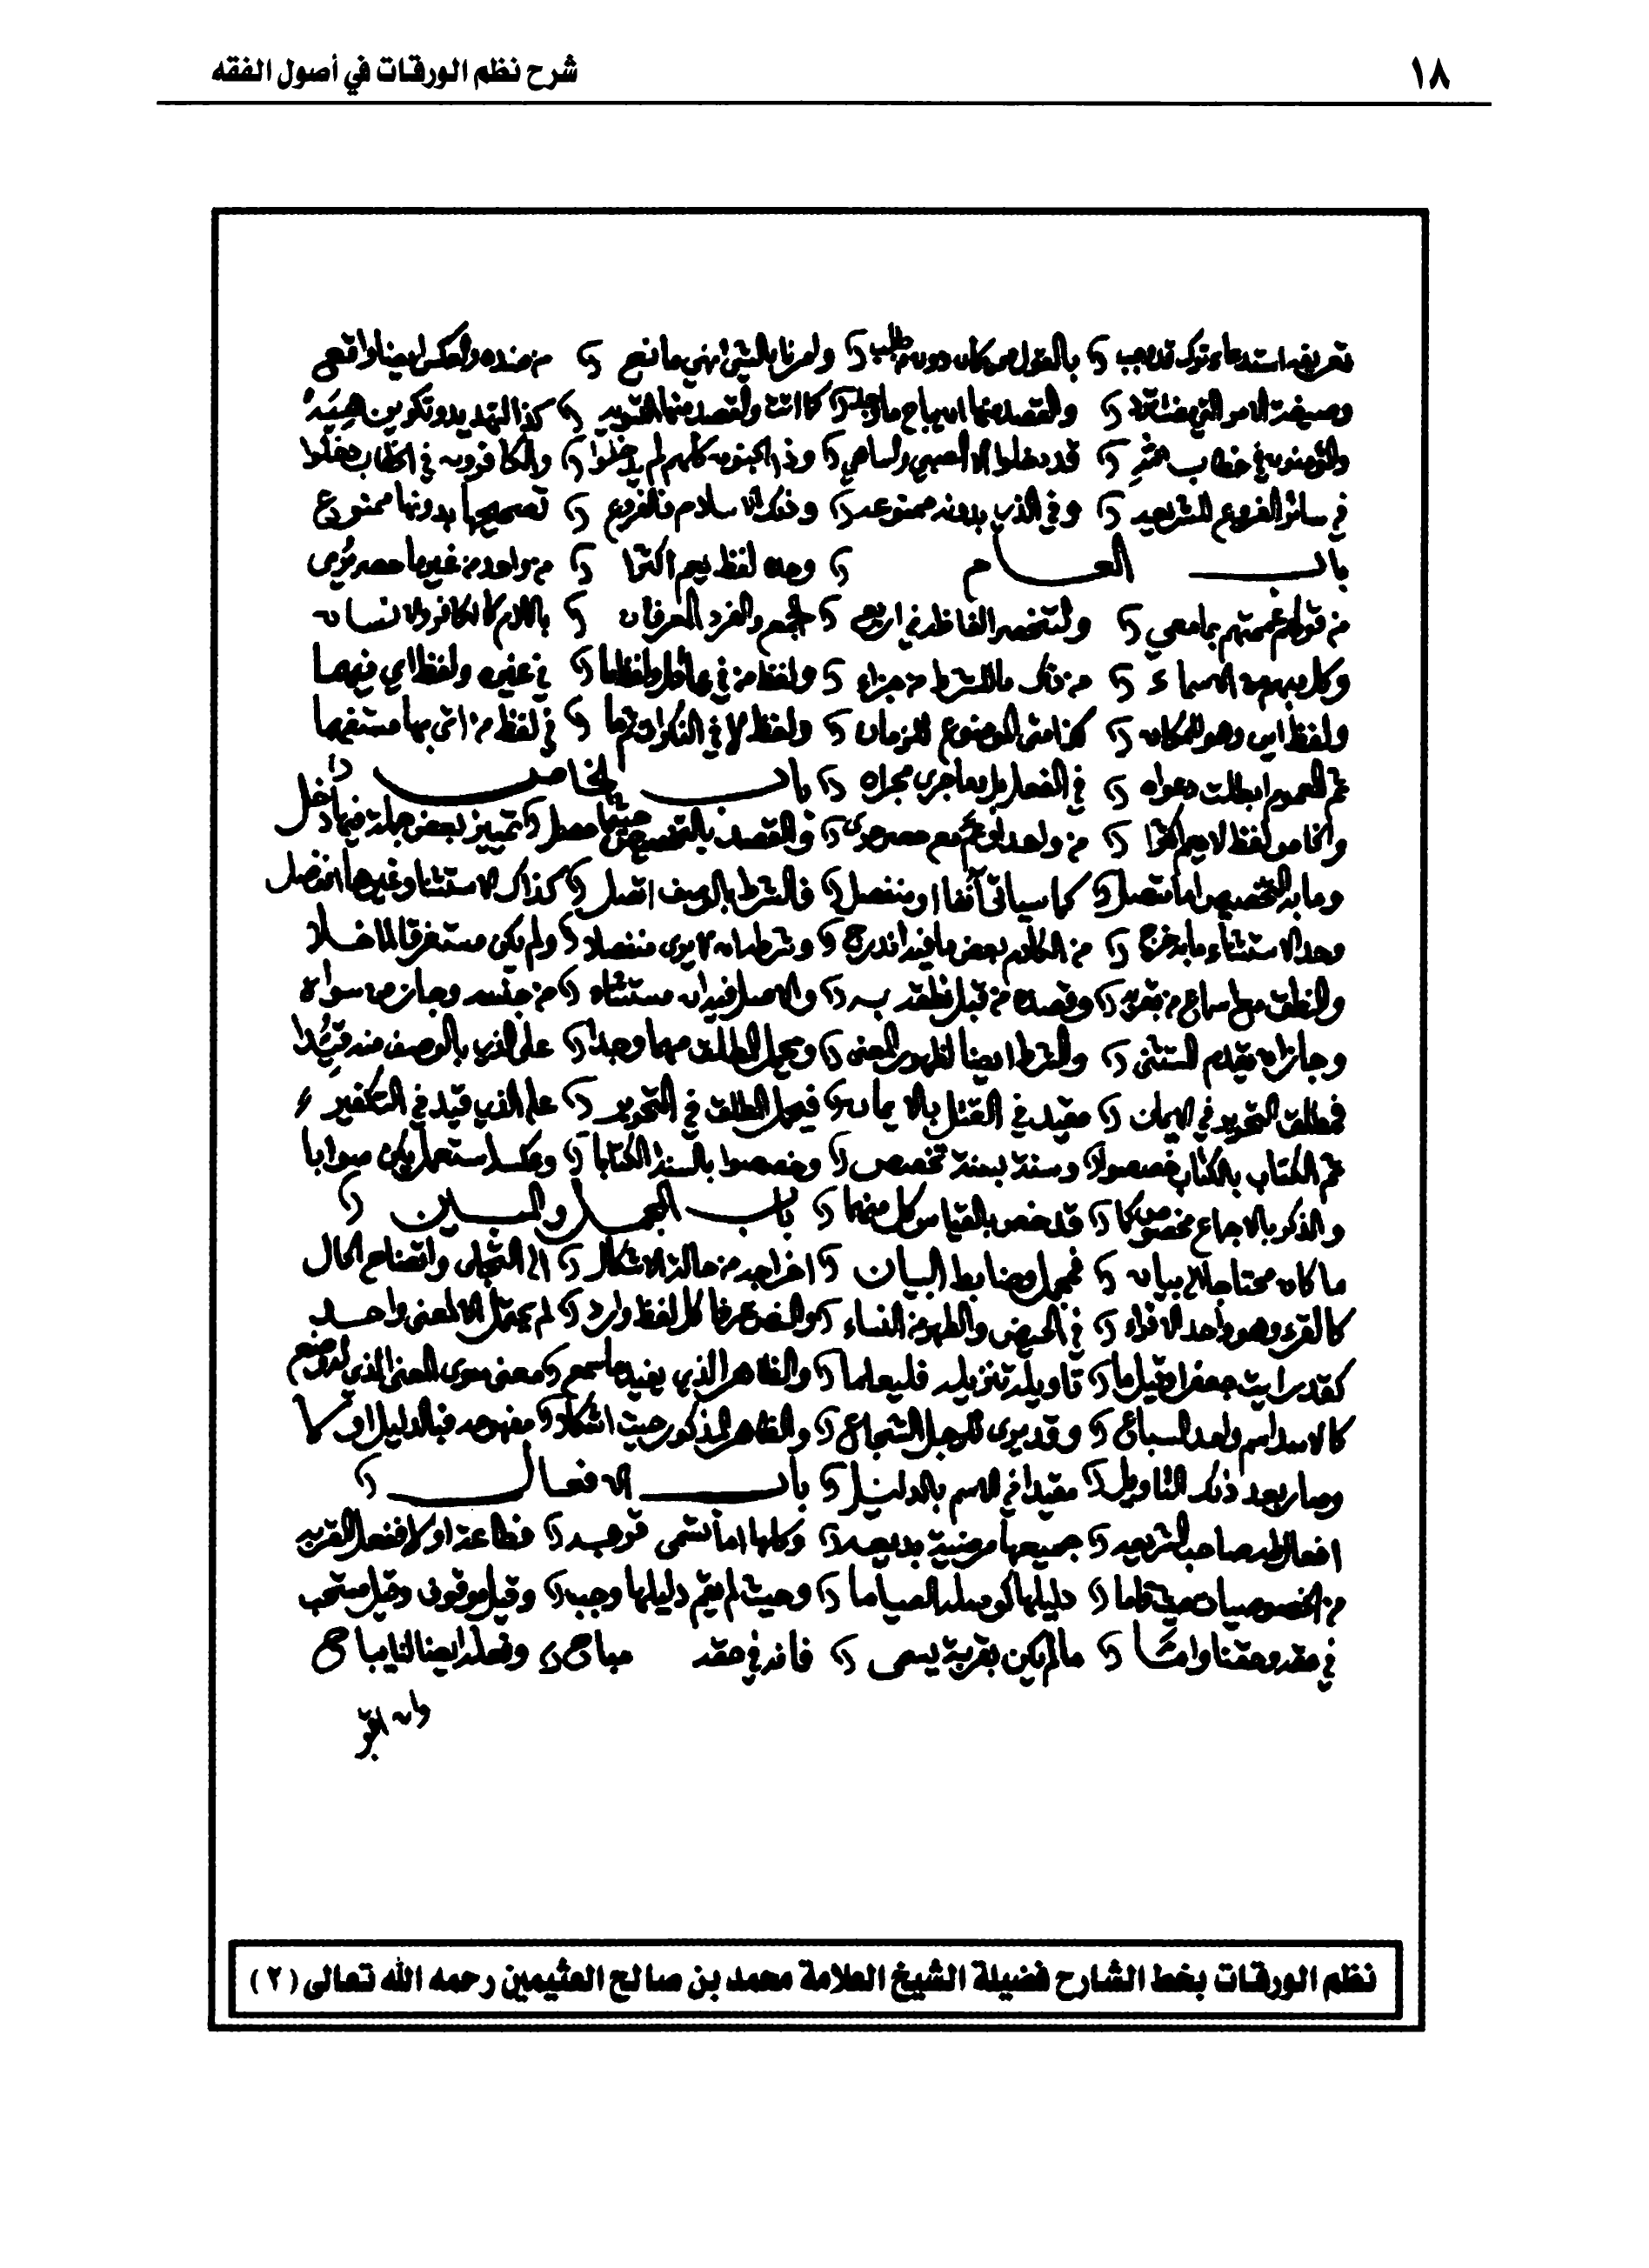 ١٨ شرح نظم الورقات في أصول الفقه
تعريفه استدعاء ترك قد يجب بالقول ممن كان دون من طلب وامرنا بالشيء نهي مانع من ضده والعكس ايضا واقع
وصيغة الامر التي مضت والقصد منها ان يباح ما وجد كما اتت والقصد منها التسويه كذا لتهديد وتكوين هيه
والمؤمنون في خطاب قد دخلوا الا الصبي والساهي وذا الجنون كلهم لم يدخلوا والكافرون في الخطاب دخلوا
في سائر الفروع للشريعه وفي الذي بدونه ممنوعه وذلك الاسلام فالفروع تصحيحها بدونها ممنوع
باب العام وحده لفظ يعم اكثرا من واحد من غير ما حصر يرى
من قولهم عممتهم بما معي ولتنحصر الفاظه في اربع الجمع والفرد المعرفان باللام كالكافر والانسان
وكل مبهم من الاسماء من ذاك ما للشرط من جزاء ولفظ من في عاقل ولفظ ما في غيره ولفظ اي فيهما
ولفظ اين وهو للمكان كذا متى الموضوع للزمان ولفظ لا في النكرات ثم ما في لفظ من اتى بها مستفهما
ثم العموم ابطلت دعواه في الفعل بل وما جرى مجراه باب الخاص
والخاص لفظ لا يعم اكثرا من واحد او عم مع حصر جرى والقصد بالتخصيص حيثما حصل تمييز بعض جملة فيها دخل
وما به التخصيص اما متصل كما سيأتي آنفا او منفصل فالشرط بالوصف اتصل كذاك الاستثنا وغيرها انفصل
وحد الاستثناء ما به خرج من الكلام بعض ما فيه اندرج وشرطه ان لا يرى منفصلا ولم يكن مستغرقا لما خلا
والنطق مع اسماع من بقربه وقصده من قبل نطقه به والاصل فيه ان مستثناه من جنسه وجاز من سواه
وجاز ان يقدم المستثنى والشرط ايضا لظهور المعنى ويحمل المطلق مهما وجدا على الذي بالوصف منه قيدا
فمطلق التحرير في الايمان مقيد في القتل بالايمان فيحمل المطلق في التحرير على الذي قيد في التكفير
ثم الكتاب بالكتاب خصصوا وسنة بسنة تخصص وخصصوا بالسنة الكتابا وعكسه استعمل يكن صوابا
والذكر بالاجماع مخصوص كما قد خص بالقياس كل منهما باب المجمل والمبين
ما كان محتاجا الى بيان فمجمل وضابط البيان اخراجه من حالة الاشكال الى التجلي واتضاح الحال
كالقرء وهو واحد الاقراء في الحيض والطهر من النساء والنص عرفا كل لفظ وارد لم يحتمل الا لمعنى واحد
كقد رايت جعفرا وقيل ما تاويله تنزيله فليعلما والظاهر الذي يفيد ما سمع معنى سوى المعنى الذي له وضع
كالاسد اسم واحد السباع وقد يرى للرجل الشجاع والظاهر المذكور حيث اشكلا مفهومه فبالدليل اولا
وصار بعد ذلك التاويل مقيدا في الاسم بالدليل باب الافعال
افعال طه صاحب الشريعه جميعها مرضية بديعه وكلها اما تسمى قربه فطاعة او لا ففعل القربه
من الخصوصيات حيث قاما دليلها كوصله الصياما وحيث لم يقم دليلها وجب وقيل موقوف وقيل مستحب
في حقه وحقنا واما ما لم يكن بقربة يسمى فانه في حقه مباح وفعله ايضا لنا يباح
وان اقر
نظم الورقات بخط الشارح فضيلة الشيخ العلامة محمد بن صالح العثيمين رحمه الله تعالى (٢)